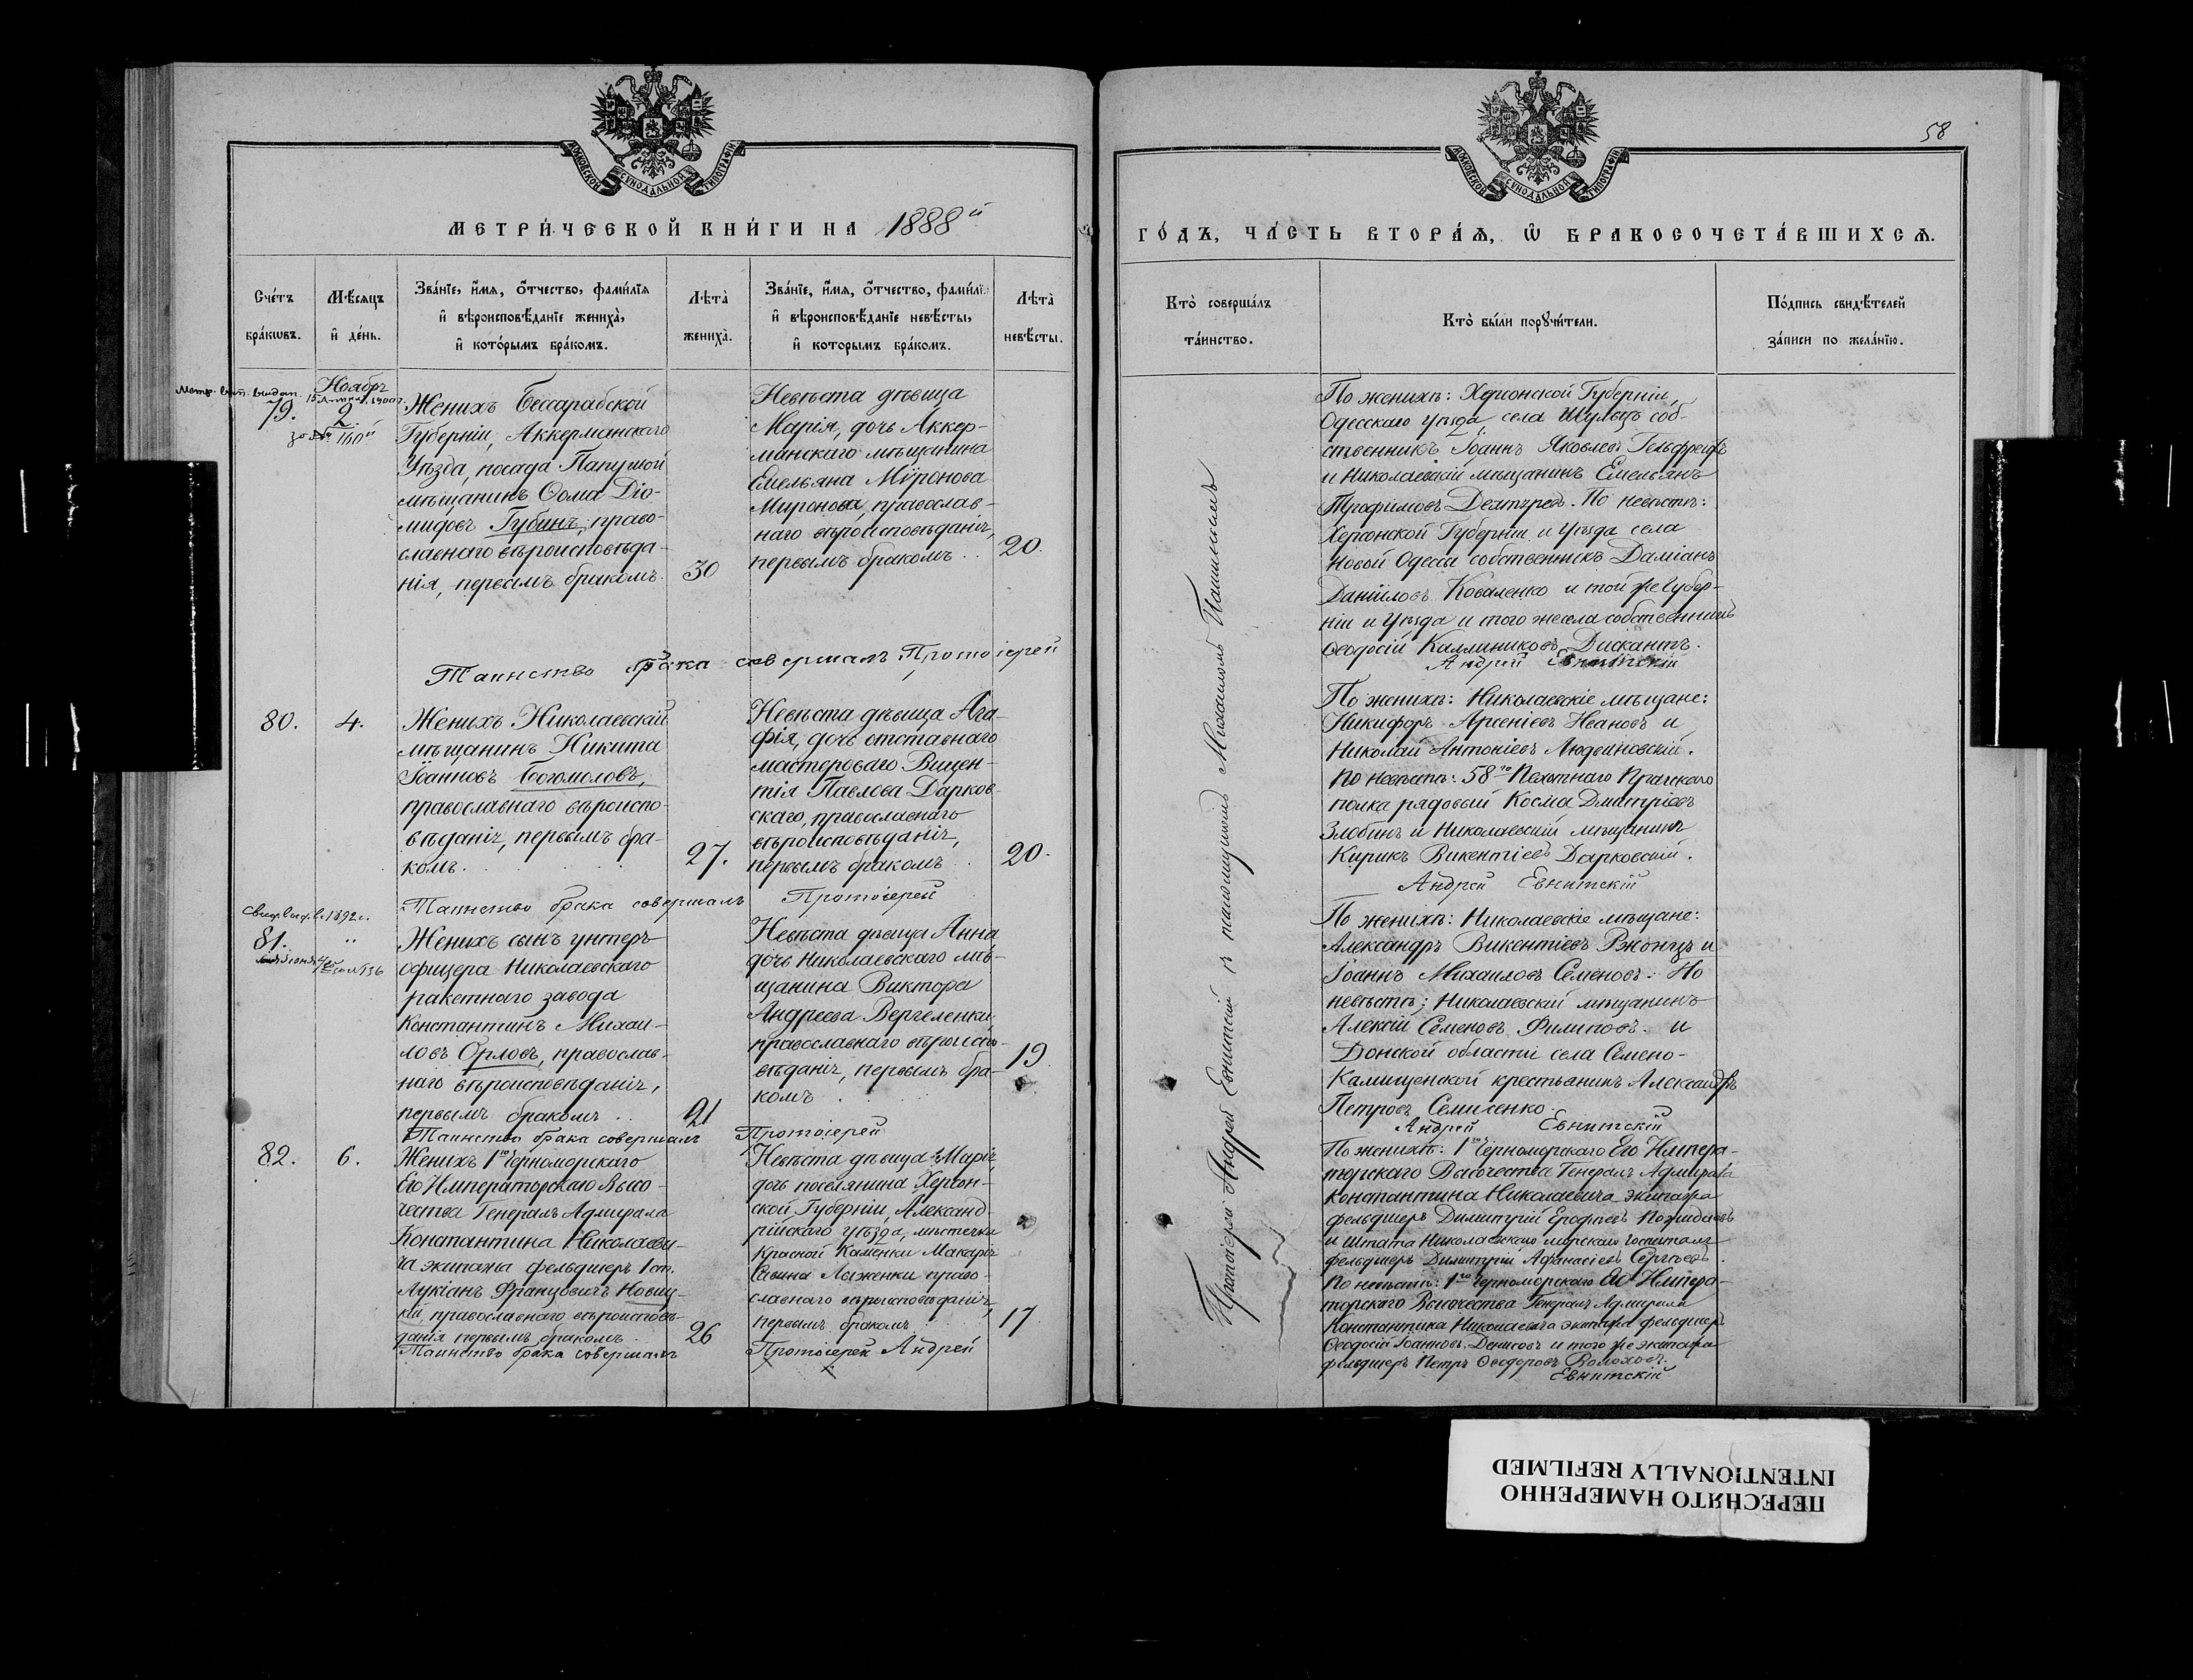 МОСКОВСКОЙ СѴНОДАЛЬНОЙ ТИПОГРАФІИ
МЕТРИ́ЧЕСКОЙ КНИ́ГИ НА 1888й
Сче́тъ бра́кωвъ.
Мѣ́сяцъ и҆ де́нь.
Зва́нїе, и҆́мя, ѻ҆́тчество, фами́лїя и҆ вѣроисповѣ́данїе жениха̀, и҆ кото́рымъ бра́комъ.
Лѣта̀ жениха̀.
Зва́нїе, и҆́мя, ѻ҆́тчество, фами́лї. и҆ вѣроисповѣ́данїе невѣ́сты, и҆ которымъ бра́комъ.
Лѣта̀ невѣ́сты.
Метр. вып. выдан. 15 Апрѣл. 1900г.
за № 160й
79.
Ноябрь
2
Женихъ Бессарабской
Губерніи, Аккерманскаго
Уѣзда, посада Папушой
мѣщанинъ Ѳома Діо-
мидовъ Губинъ, право-
славнаго вѣроисповѣда-
нія, первымъ бракомъ.
30
Невѣста дѣвица
Марія, дочь Аккер-
манскаго мѣщанина
Емельяна Мѵронова
Миронова, православ-
наго вѣроисповѣданія,
первымъ бракомъ . .
20.
Таинство брака совершалъ Протоіерей
80.
4.
Женихъ Николаевскій
мѣщанинъ Никита
Іоанновъ Богомоловъ,
православнаго вѣроиспо-
вѣданія, первымъ бра-
комъ.
27.
Невѣста дѣвица Ага-
фія, дочь отставнаго
мастероваго Вицен-
тія Павлова Дарков-
скаго, православнаго
вѣроисповѣданія,
первымъ бракомъ .
20.
Таинство брака совершалъ Протоіерей
1892г.
81.
"
Женихъ сынъ унтеръ-
офицера Николаевскаго
ракетнаго завода
Константинъ Михаи-
ловъ Орловъ, православ-
наго вѣроисповѣданія,
первымъ бракомъ . .
21
Невѣста дѣвица Анна
дочь Николаевскаго мѣ-
щанина Виктора
Андреева Вергеленки
православнаго вѣроиспо-
вѣданія, первымъ бра-
комъ .
19
Таинство брака совершалъ Протоіерей
82.
6.
Женихъ 1го Черноморскаго
Его Императорскаго Высо-
чества Генералъ Адмирала
Константина Николаеви-
ча экипажа фельдшеръ 1 ст.
Лукіанъ Францовичъ Новиц-
кій, православнаго вѣроисповѣ-
данія первымъ бракомъ .
26
Невѣста дѣвица Марія,
дочь поселянина Херсон-
ской Губерніи, Александ-
рійскаго уѣзда, мѣстечка
Красной Каменки Макарія
Савина Лыженки право-
славнаго вѣроисповѣданія,
первымъ бракомъ
17
Таинство брака совершалъ Протоіерей Андрей
МОСКОВСКОЙ СѴНОДАЛЬНОЙ ТИПОГРАФІИ
58
ГО́ДЪ, ЧА́СТЬ ВТОРА́Я, Ѡ҆ БРАКОСОЧЕТА́ВШИХСЯ.
Кто̀ соверша́лъ та́инство.
Кто̀ бы́ли порꙋчи́тели.
По́дпись свидѣ́телей за́писи по жела́нїю.
Протоіерей Андрей Евнитскій съ псаломщикомъ Михаиломъ
По женихѣ: Херсонской Губерніи,
Одесскаго уѣзда, села Шульцъ соб-
ственникъ Іоаннъ Яковлевъ Гельфрейхъ
и Николаевскій мѣщанинъ Емельянъ
Трофимовъ Дехтяревъ. По невѣстѣ:
Херсонской Губерніи и Уѣзда села
Новой Одессы собственникъ Даміанъ
Даніиловъ Коваленко и той же Губер-
ніи и Уѣзда и того же села собственникъ
Ѳеодосій Каллиниковъ Дискантъ.
Андрей Евнитскій
По женихѣ: Николаевскіе мѣщане:
Никифоръ Арсеніевъ Ивановъ и
Николай Антоніевъ Людвиновскій.
По невѣстѣ: 58го Пехотнаго Прагскаго
полка рядовый Косма Дмитріевъ
Злобинъ и Николаевскій мѣщанинъ
Кирикъ Викентіевъ Дарковскій.
Андрей Евнитскій
По женихѣ: Николаевскіе мѣщане:
Александръ Викентіевъ Ржонцъ и
Іоаннъ Михаиловъ Семеновъ. По
невѣстѣ; Николаевскій мѣщанинъ
Алексій Семеновъ Филиповъ. и
Донской области села Семено-
Камищенской крестьянинъ Александръ
Петровъ Семисенко.
Андрей Евнитскій
По женихѣ: 1го Черноморскаго Его Импера-
торскаго Высочества Генералъ Адмирала
Константина Николаевича экипажа
фельдшеръ Димитрій Ерофеевъ Пожидаевъ
и штата Николаевскаго морскаго госпиталя
фельдшеръ Димитрій Афанасіевъ Сергѣевъ.
По невѣстѣ: 1го Черноморскаго Его Импера-
торскаго Высочества Генералъ Адмирала
Константина Николаевича экипажа фельдшеръ
Ѳеодосій Іоанновъ Денисовъ и того же экипажа
фельдшеръ Петръ Ѳеодоровъ Волоховъ.
Евнитскій
ПЕРЕСНЯТО НАМЕРЕННО
INTENTIONALLY REFILMED